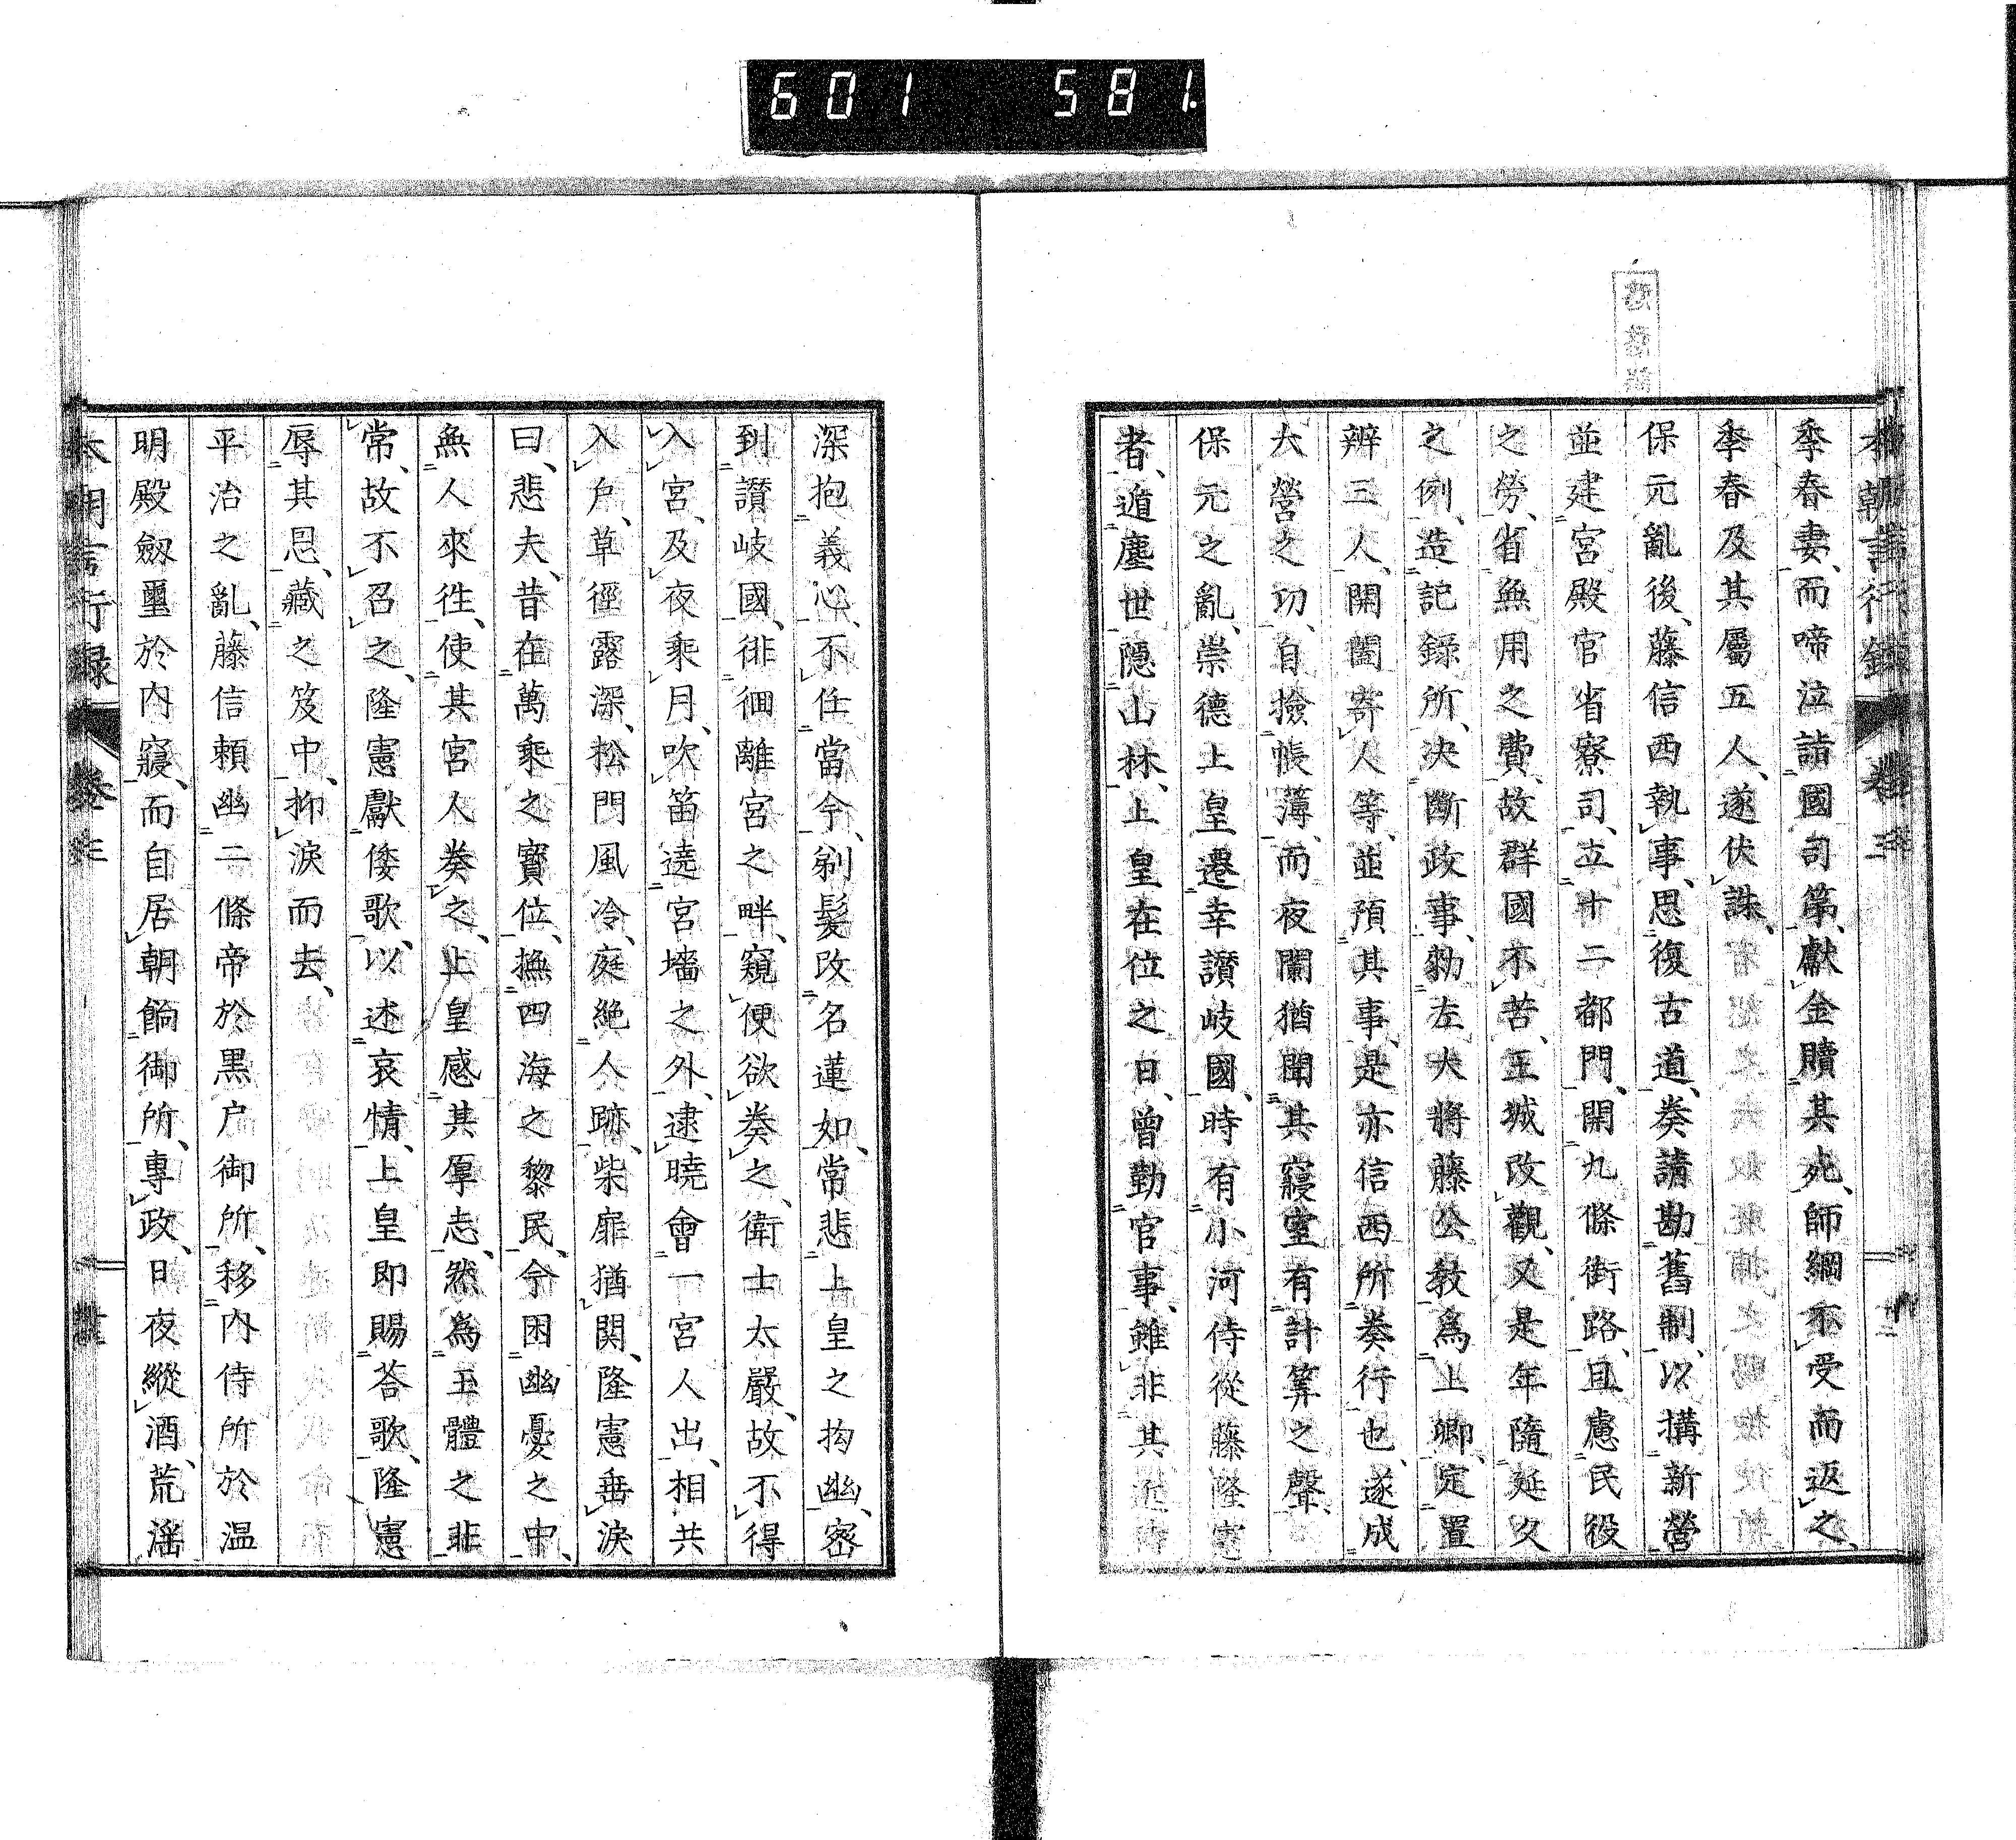 601 581.
季春妻、而啼泣詣國司第、獻金贖其死、師綱不受而返之、
季春及其屬五人、遂伏誅、
保元亂後、藤信西執事、思復古道、奏請勘舊制、以搆新營
並建宮殿官省寮司、立十二都門、開九條街路、且慮民役
之勞、省無用之費、故群國不苦、王城改觀、又是年隨延久
之例、造記録所、決斷政事、勅左大將藤公教爲上卿、定置
辨三人、開闔寄人等、並預其事、是亦信西所奏行也、遂成
大營之功、自撿帳簿、而夜闌猶聞其寢室有計算之聲、
保元之亂、崇德上皇遷幸讃岐國、時有小河侍從藤隆憲
者、遁塵世隱山林、上皇在位之日、曾勤官事、雖非其近侍
深抱義心、不任當今、剃髮改名蓮如、常悲上皇之拘幽、密
到讃岐國、徘徊離宮之畔、窺便欲奏之、衛士太嚴、故不得
入宮、及夜乘月、吹笛遶宮墻之外、逮曉會一宮人出、相共
入戸、草徑露深、松門風冷、庭絶人跡、柴扉猶関、隆憲垂淚
曰、悲夫、昔在萬乘之寶位、撫四海之黎民、今困幽憂之中、
無人來徃、使其宮人奏之、上皇感其厚志、然爲玉體之非
常、故不召之、隆憲獻倭歌、以述哀情、上皇即賜荅歌、隆憲
辱其恩、藏之笈中、抑淚而去、
平治之亂、藤信賴幽二條帝於黒戸御所、移内侍所於温
明殿劔璽於内寢、而自居朝餉御所、專政、日夜縱酒、荒滛
本朝言行録 卷三